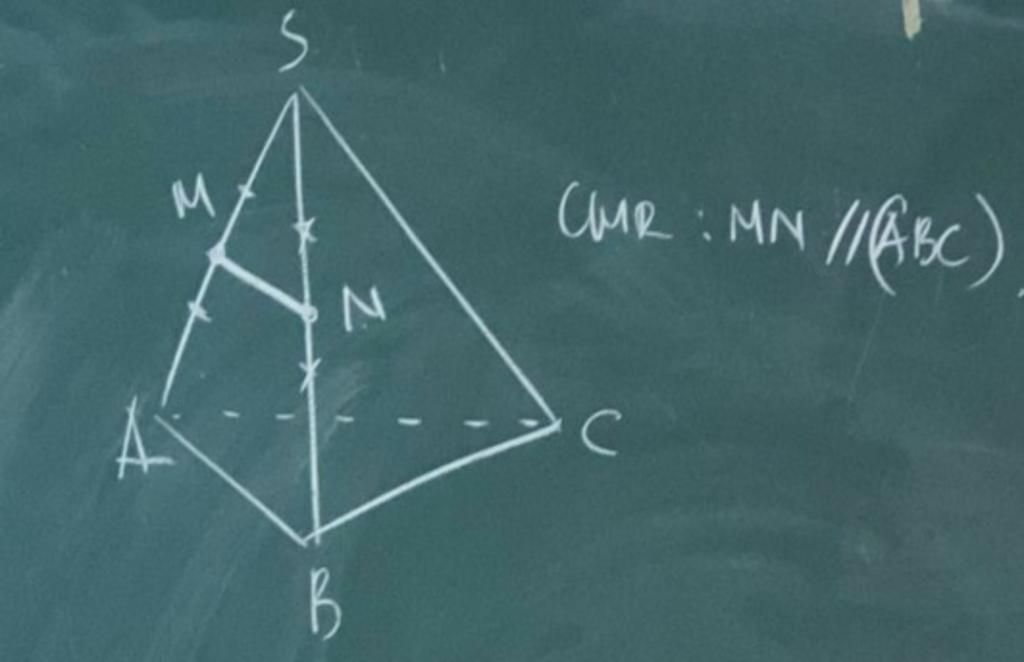 S
M
CMR : MN // (ABC),
N
A
C
B